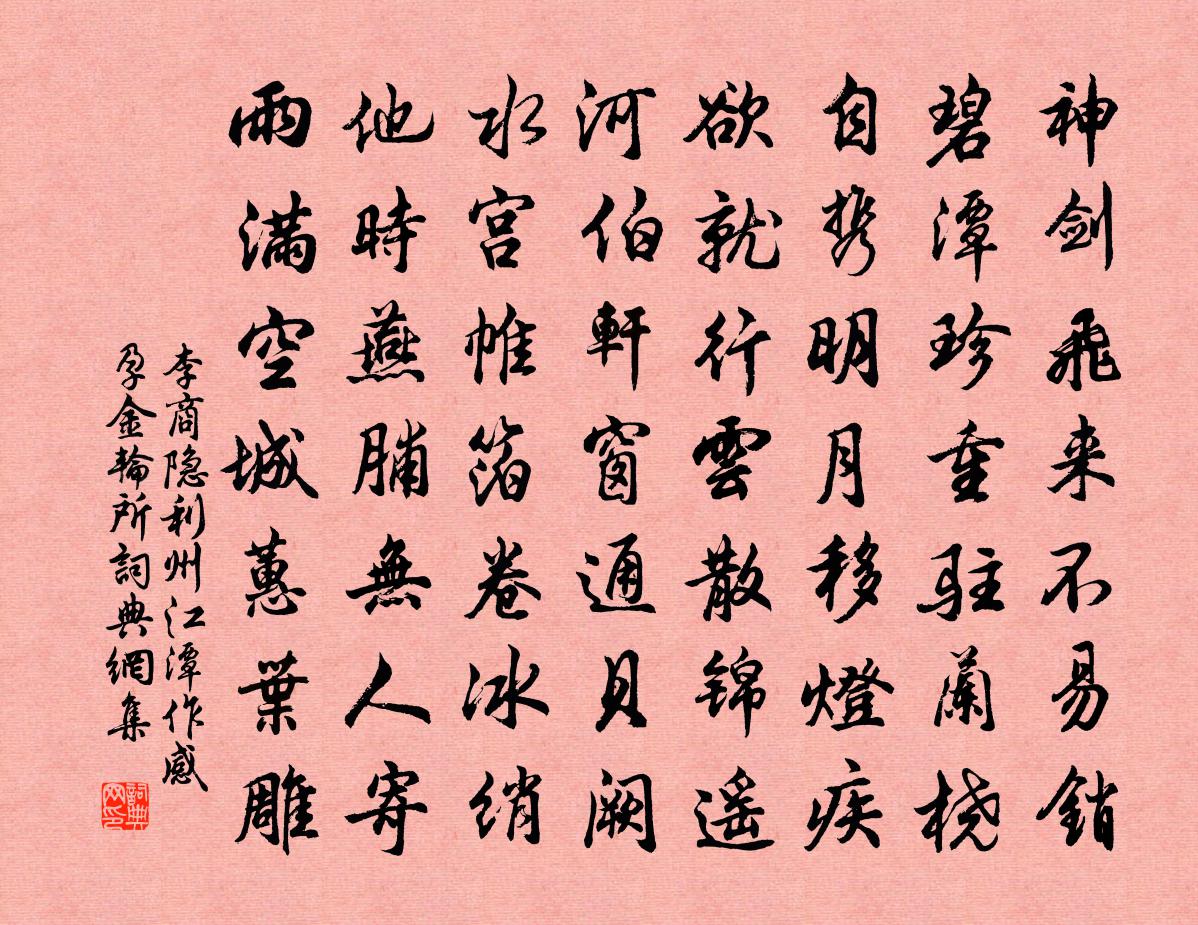 神剑飛来不易銷
碧潭珍重駐蘭橈
自携明月移燈疾
欲就行雲散錦遥
河伯軒窗通貝阙
水宫帷箔卷冰绡
他時燕脯無人寄
雨满空城蕙葉雕
李商隐利州江潭作感
孕金輪所詞典網集
詞典
网印